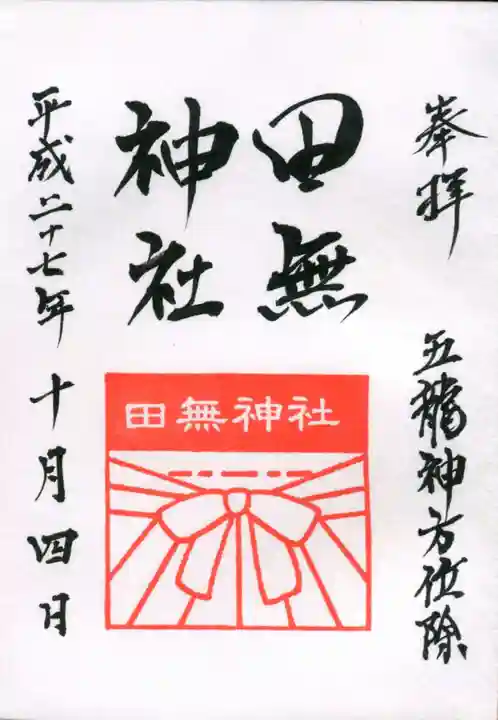 奉拝
五龍神方位除
田無
神社
田無神社
平成二十七年 十月四日